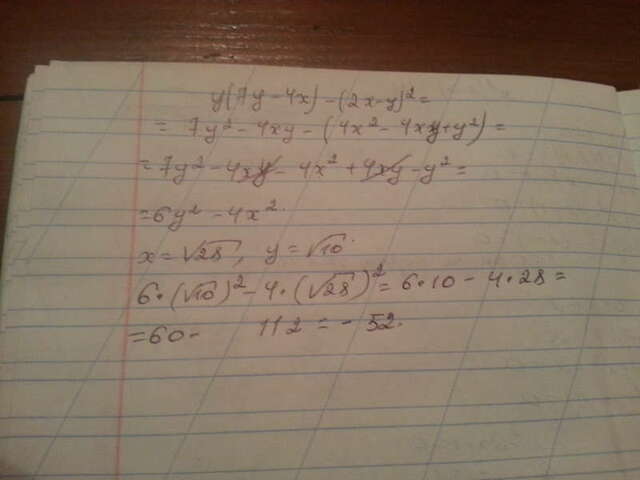 y(7y-4x)-(2x-y)²=
= 7y²-4xy-(4x²-4xy+y²)=
=7y²-4xy-4x²+4xy-y²=
=6y²-4x².
x=√28, y=√10.
6·(√10)²-4·(√28)²=6·10-4·28=
=60- 112=-52.